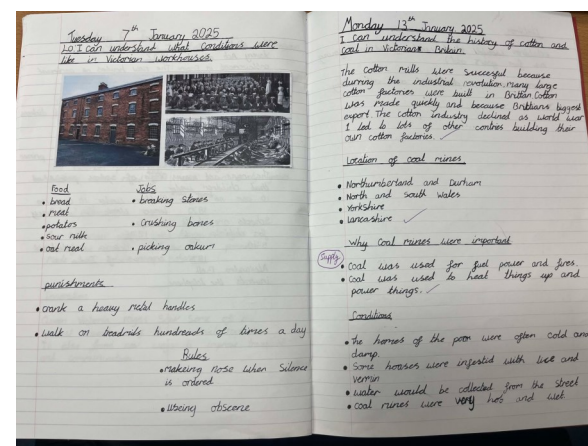 Tuesday 7th January 2025
LO I can understand what conditions were
like in Victorian workhouses.
Food
• bread
• meat
• potatos
• sour milk
• oat meal
Jobs
• breaking stones
• crushing bones
• picking oakum
punishments
• crank a heavy metal handles
• walk on treadmills hundreads of times a day
Rules
• makeing nose when silence
is ordered
• useing obscene
Monday 13th January 2025
I can understand the history of cotton and
coal in Victorian Britain.
The cotton mills were succesful because
durring the industrial revolution, many large
cotton factories were built in Brittan Cotton
was made quickly and because Brittans biggest
export. The cotton industry declined as world war
1 led to lots of other contres building their
own cotton factories.
Location of coal mines
• Northumberland and Durham
• North and south wales
• Yorkshire
• lancashire
Why coal mines were important
Supply
• Coal was used for fuel power and fires.
• Coal was used to heat things up and
power things.
Conditions
• the homes of the poor were often cold and
damp.
• Some houses were infestid with lice and
• water would be collected from the street
• coal mines were very hot and wet